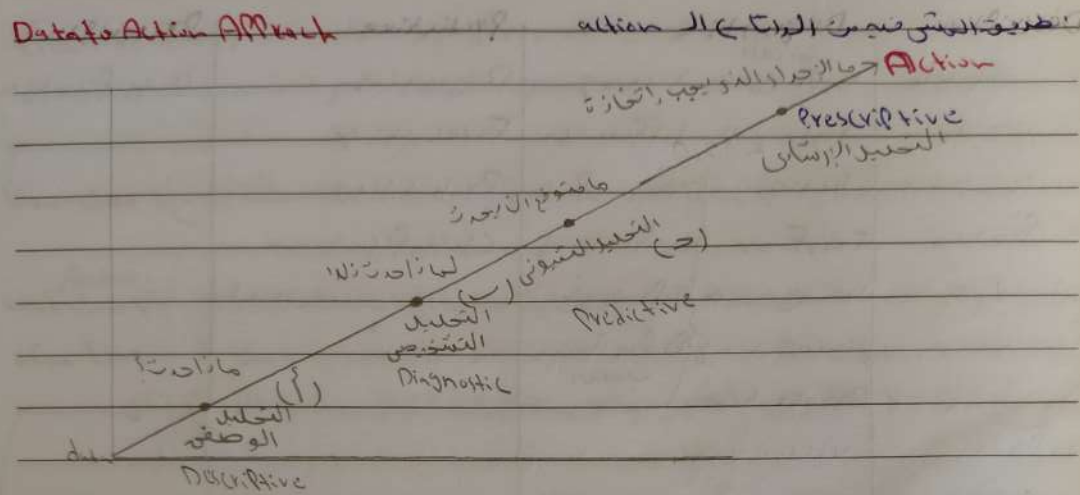 Data to Action Approach
طريقة المشي فيه من الداتا الى ال action
Action
ما الإجراء الذي يجب اتخاذة
Prescriptive
التحليل الإرشادى
ما متوقع ان يحدث
(ج)
التحليل التنبؤى
Predictive
لماذا حدث ذلك
(ب)
التحليل
التشخيصى
Diagnostic
ماذا حدث؟
(أ)
التحليل
الوصفى
data
Discriptive